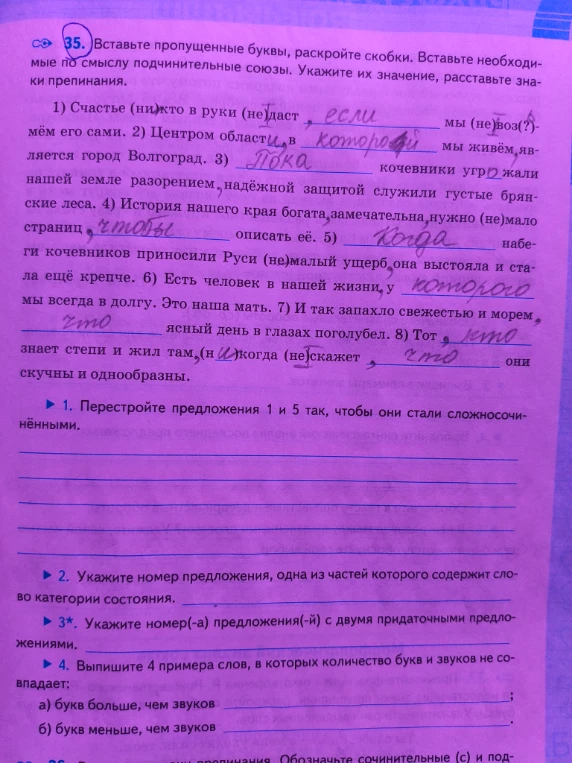 35. Вставьте пропущенные буквы, раскройте скобки. Вставьте необходи-
мые по смыслу подчинительные союзы. Укажите их значение, расставьте зна-
ки препинания.
1) Счастье (ни)кто в руки (не)даст , если мы (не)воз(?)-
мём его сами. 2) Центром области, в которой мы живём, яв-
ляется город Волгоград. 3) Пока кочевники угрожали
нашей земле разорением, надёжной защитой служили густые брян-
ские леса. 4) История нашего края богата, замечательна, нужно (не)мало
страниц , чтобы описать её. 5) Когда набе-
ги кочевников приносили Руси (не)малый ущерб, она выстояла и ста-
ла ещё крепче. 6) Есть человек в нашей жизни, у которого
мы всегда в долгу. Это наша мать. 7) И так запахло свежестью и морем,
что ясный день в глазах поголубел. 8) Тот , кто
знает степи и жил там, (ни)когда (не)скажет , что они
скучны и однообразны.
► 1. Перестройте предложения 1 и 5 так, чтобы они стали сложносочи-
нёнными.
► 2. Укажите номер предложения, одна из частей которого содержит сло-
во категории состояния.
► 3*. Укажите номер(-а) предложения(-й) с двумя придаточными предло-
жениями.
► 4. Выпишите 4 примера слов, в которых количество букв и звуков не со-
впадает:
а) букв больше, чем звуков ;
б) букв меньше, чем звуков .
препинания. Обозначьте сочинительные (с) и под-